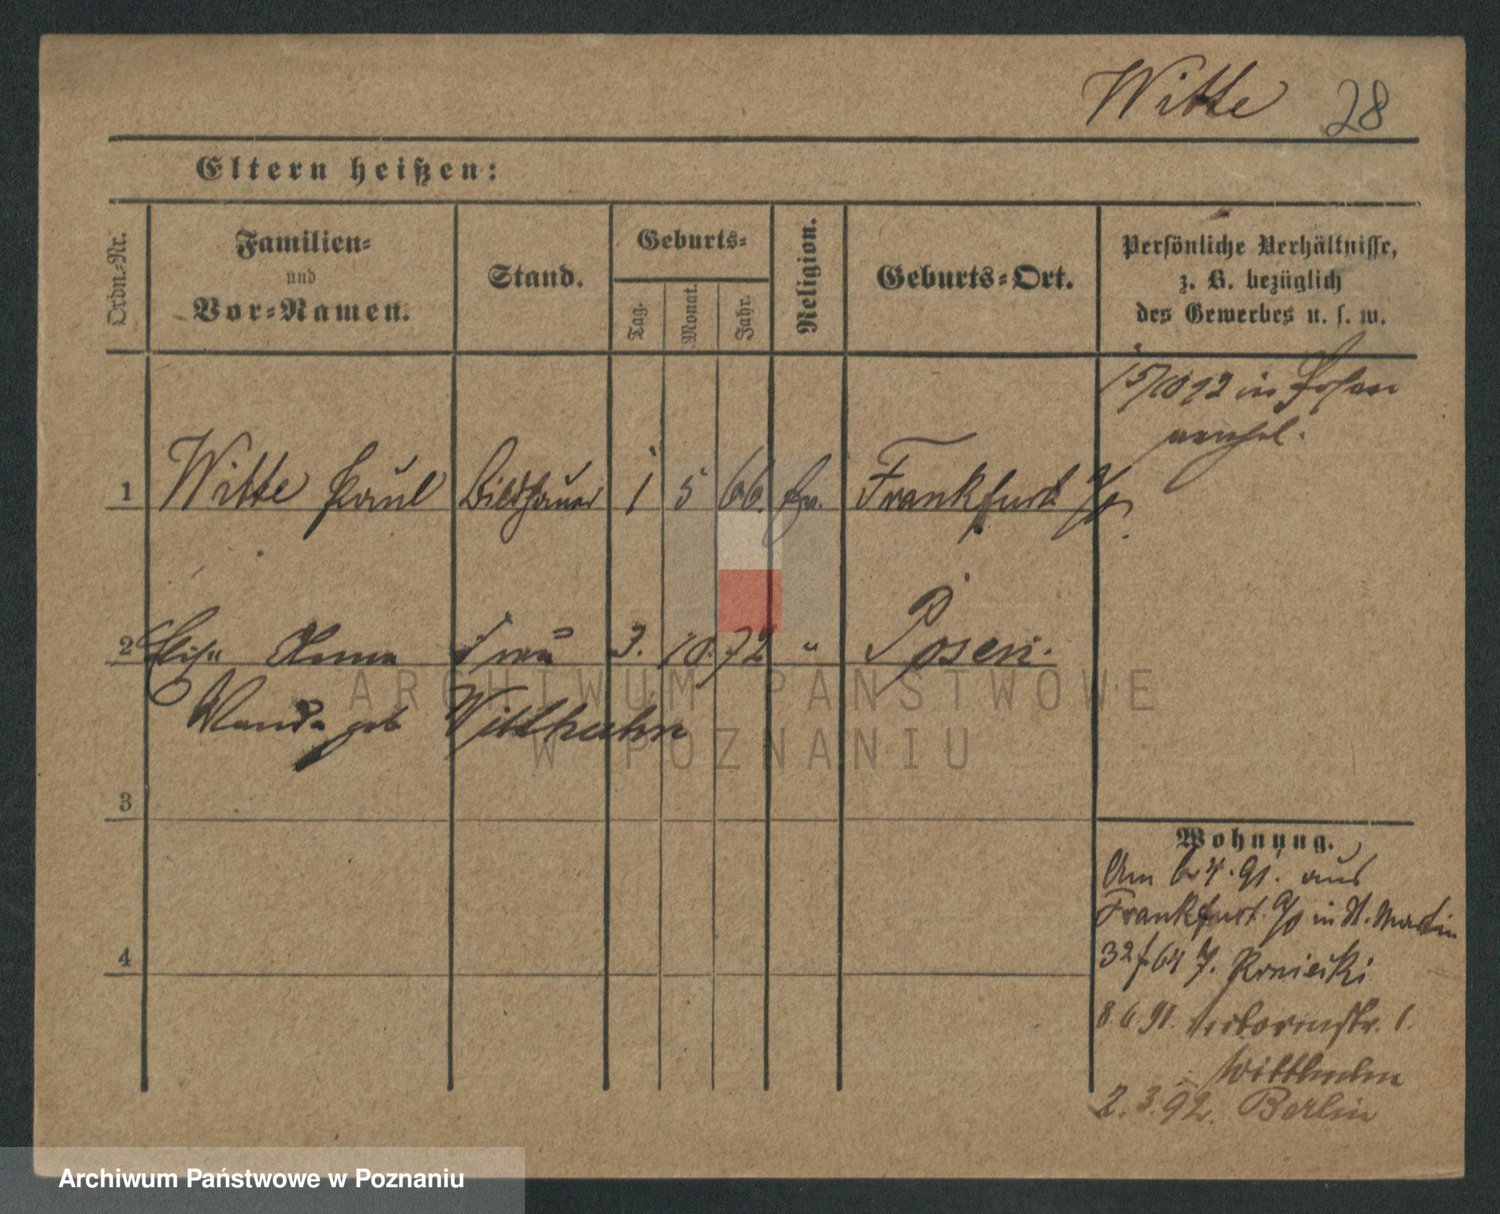 Witte 28
Eltern heißen:
Ordn.-Nr.
Familien-
und
Vor-Namen.
Stand.
Geburts-
Tag.
Monat.
Jahr.
Religion.
Geburts-Ort.
Persönliche Verhältnisse,
z. B. bezüglich
des Gewerbes u. s. w.
in Posen
1 Witte Paul Bildhauer 1 5 66. Ev. Frankfurt a/O.
2 Anna Frau 3. 10. 72 " Posen.
Wanda geb Witthuhn
3
4
Wohnung.
Am 6 4. 91. aus
Frankfurt a/o in St. Martin
32 64
8.6.91. 1.
Witthuhn
2.3.92. Berlin
ARCHIWUM PAŃSTWOWE
W POZNANIU
Archiwum Państwowe w Poznaniu